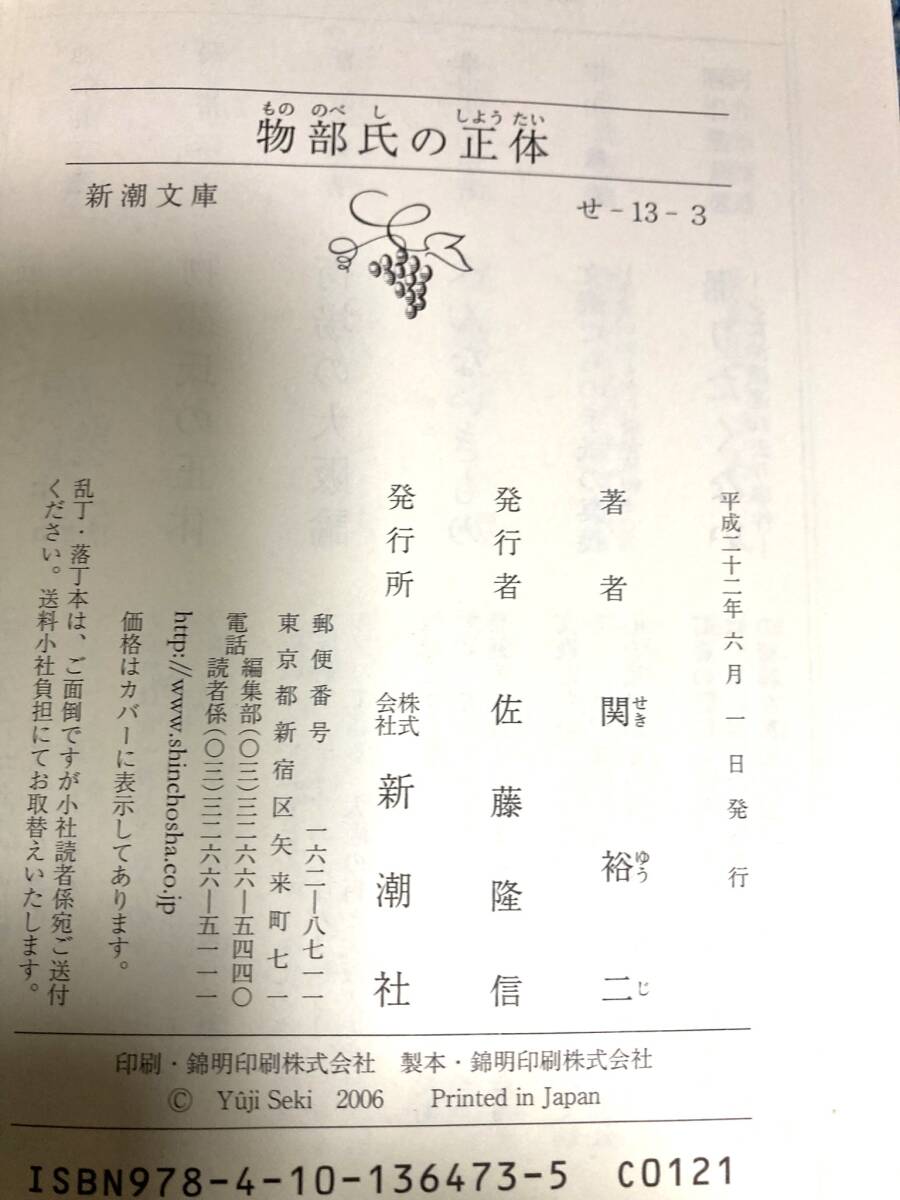 物部氏の正体
もの のべ し しよう たい
新潮文庫
せ-13-3
平成二十二年六月一日発行
著者 関裕二
せき ゆう じ
発行者 佐藤隆信
発行所 株式会社 新潮社
郵便番号 一六二―八七一一
東京都新宿区矢来町七一
電話 編集部(〇三)三二六六―五四四〇
読者係(〇三)三二六六―五一一一
http://www.shinchosha.co.jp
価格はカバーに表示してあります。
乱丁・落丁本は、ご面倒ですが小社読者係宛ご送付
ください。送料小社負担にてお取替えいたします。
印刷・錦明印刷株式会社 製本・錦明印刷株式会社
© Yûji Seki 2006 Printed in Japan
ISBN978-4-10-136473-5 C0121